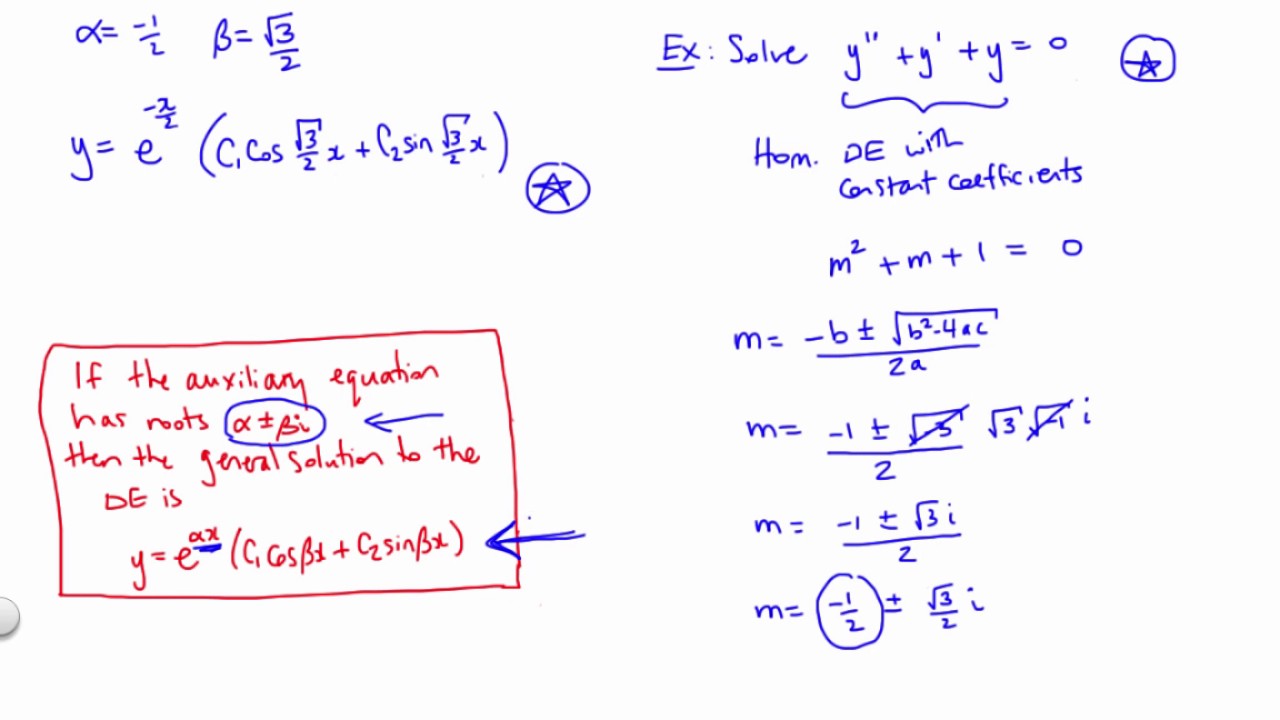 α= -1/2 β= √3/2
y= e^(-x/2) (C₁Cos √3/2 x + C₂sin √3/2 x)
If the auxiliary equation
has roots α±βi
then the general solution to the
DE is
y=e^(αx) (C₁Cosβx + C₂sinβx)
Ex: Solve y" +y' +y= 0
Hom. DE with
Constant Coefficients
m² +m+1 = 0
m= (-b ± √(b²-4ac))/2a
m= (-1 ± √-3)/2 √3 √-1 i
m= (-1 ± √3 i)/2
m= -1/2 ± √3/2 i